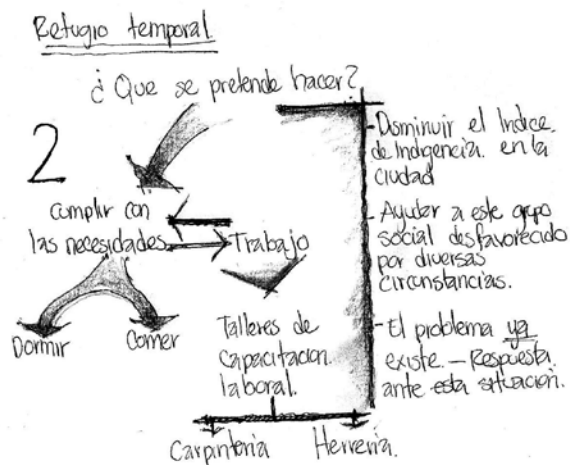 Refugio temporal
¿Que se pretende hacer?
2
cumplir con
las necesidades
Trabajo
Dormir
Comer
Talleres de
capacitacion
laboral.
Carpinteria
Herreria.
-Disminuir el Indice
de Indigencia en la
ciudad
-Ayudar a este grupo
social desfavorecido
por diversas
circunstancias.
-El problema ya
existe. - Respuesta
ante esta situación.